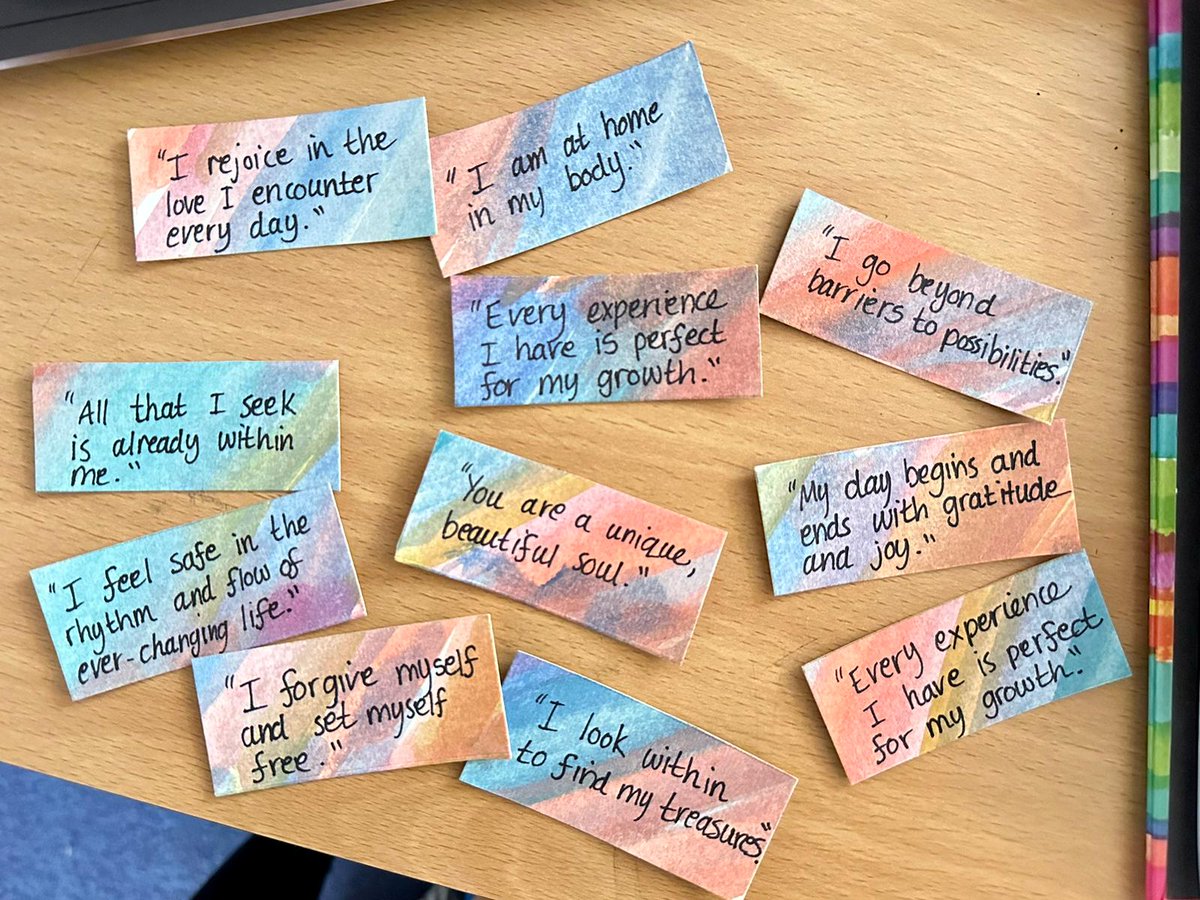 "I rejoice in the
love I encounter
every day."
"I am at home
in my body."
"I go beyond
barriers to possibilities."
"Every experience
I have is perfect
for my growth."
"All that I seek
is already within
me."
"You are a unique,
beautiful soul."
"My day begins and
ends with gratitude
and joy."
"I feel safe in the
rhythm and flow of
ever-changing life."
"Every experience
I have is perfect
for my growth."
"I forgive myself
and set myself
free."
"I look within
to find my treasures."